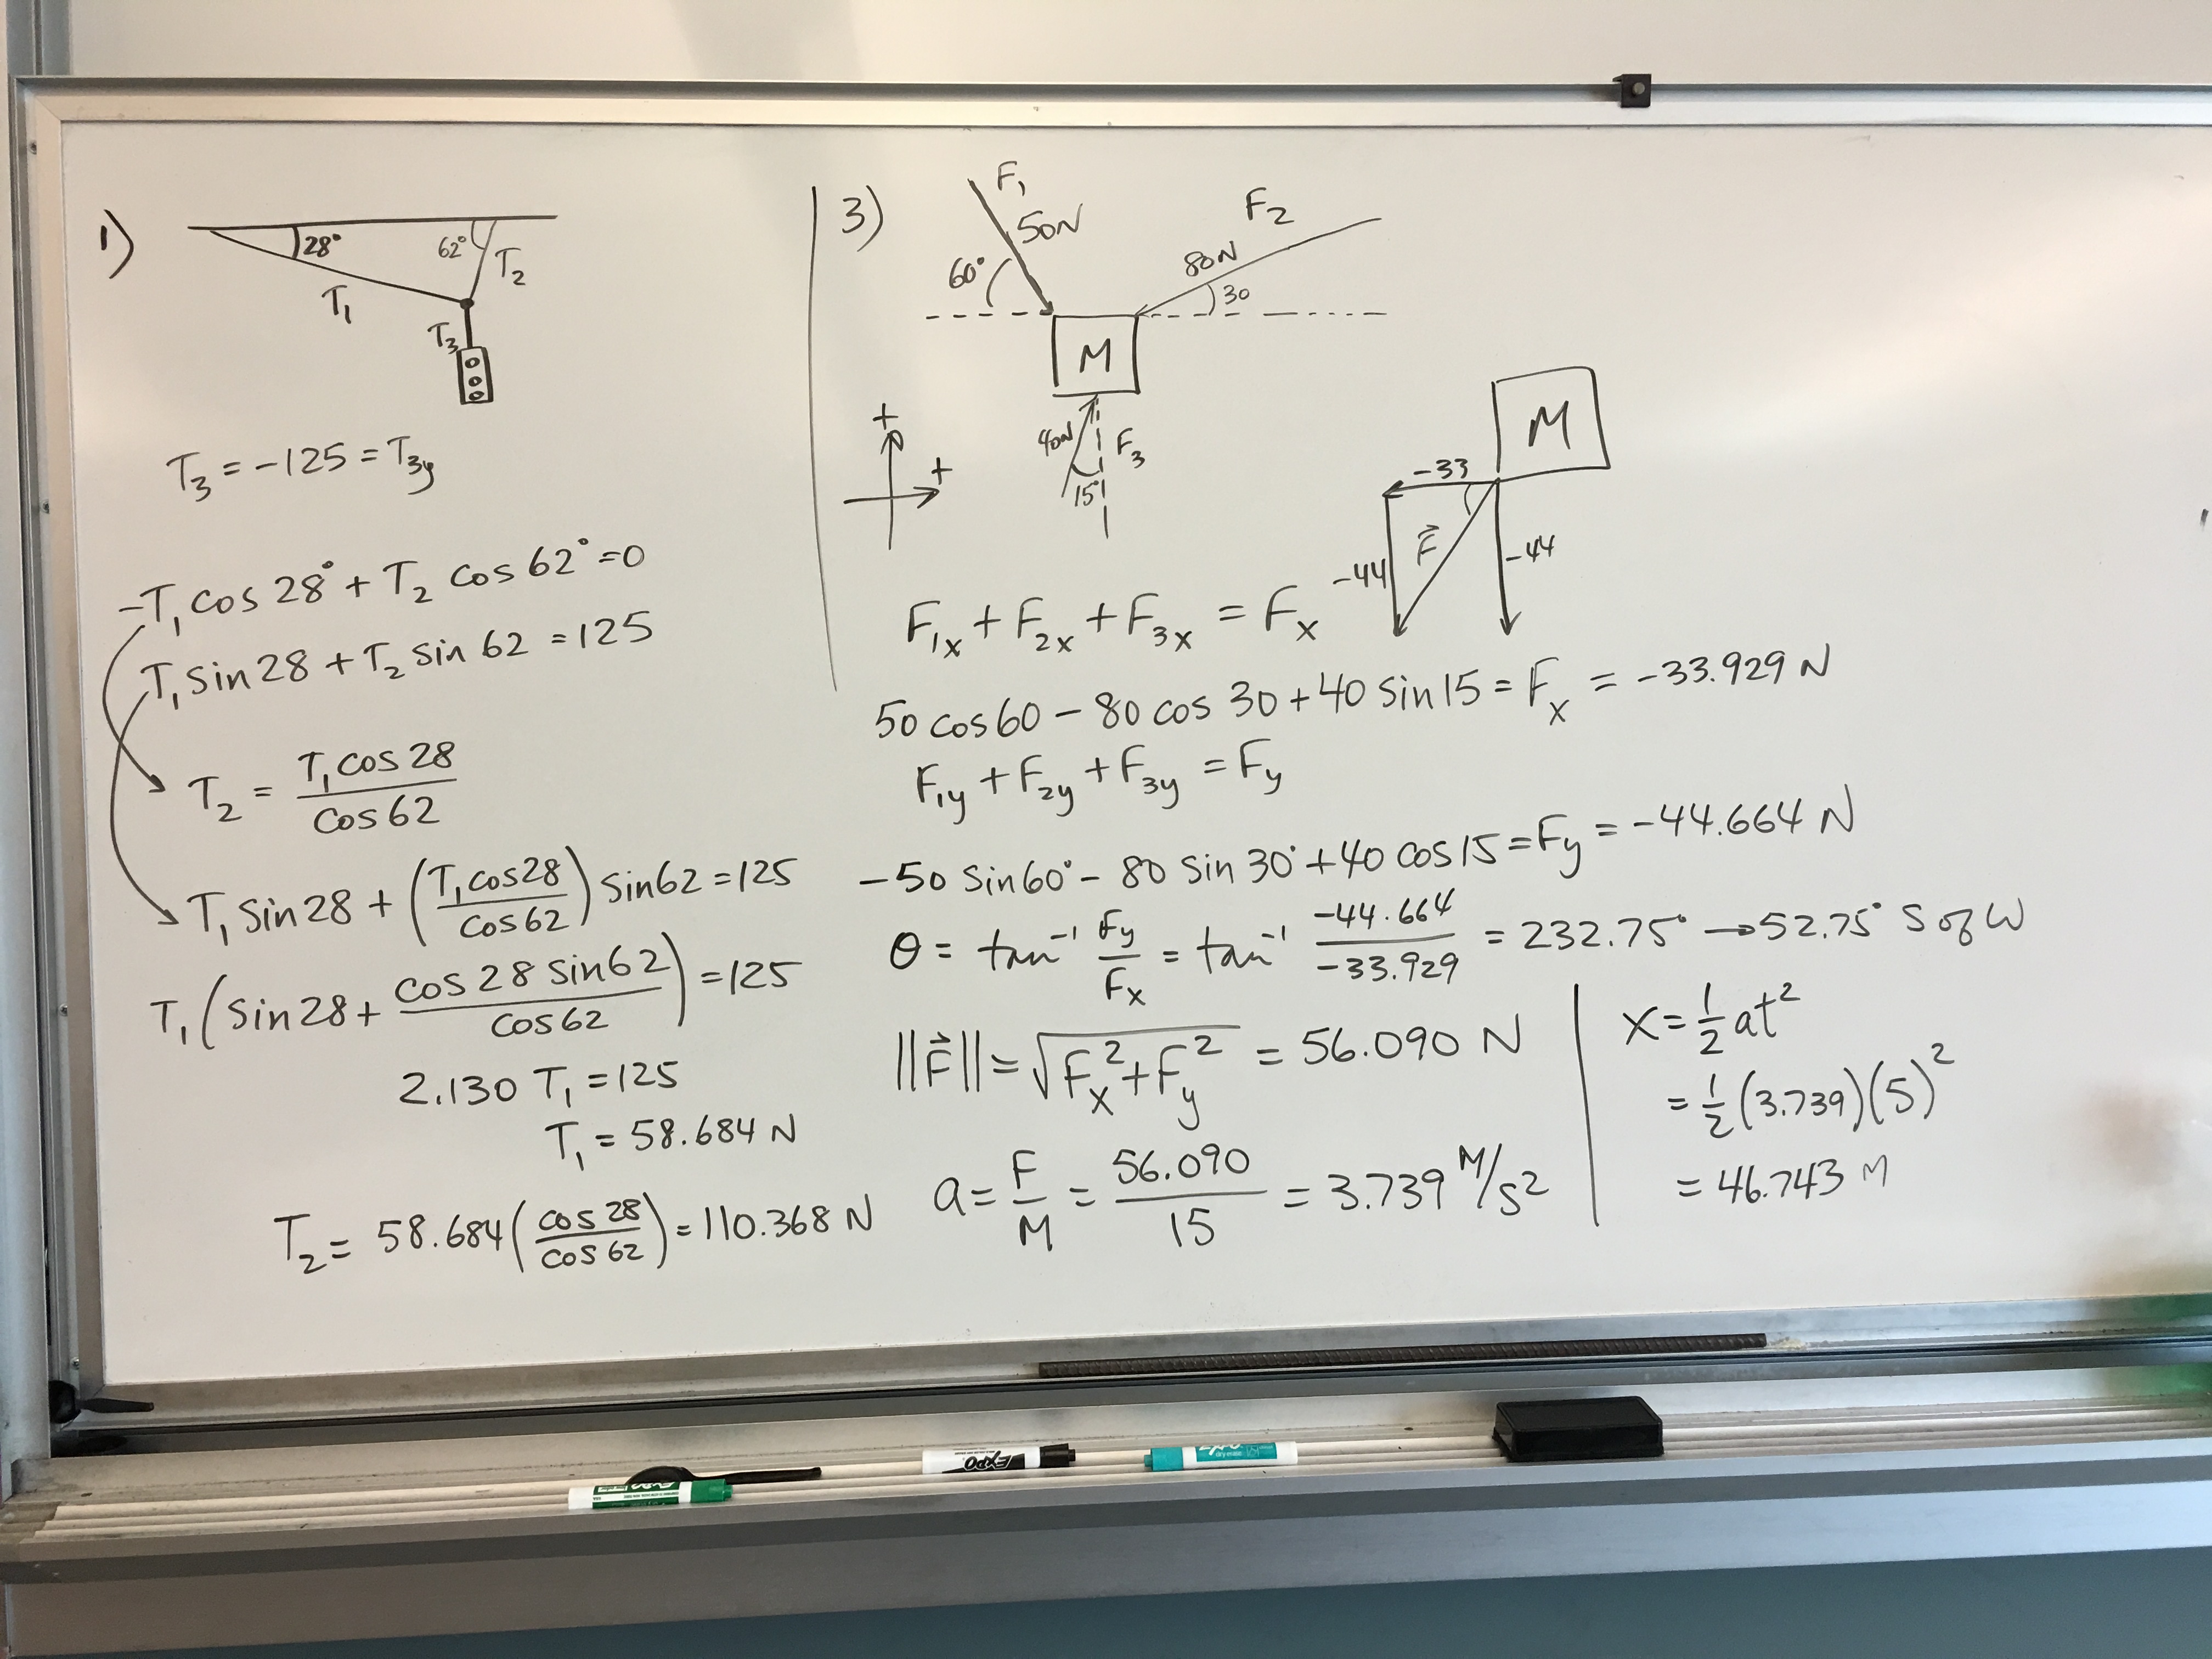 1)
28°
62°
T₁
T₂
T₃
T₃ = -125 = T₃y
-T₁ cos 28° + T₂ cos 62° = 0
T₁ sin 28 + T₂ sin 62 = 125
T₂ = T₁ cos 28 / cos 62
T₁ sin 28 + (T₁ cos 28 / cos 62) sin 62 = 125
T₁ (sin 28 + cos 28 sin 62 / cos 62) = 125
2.130 T₁ = 125
T₁ = 58.684 N
T₂ = 58.684 (cos 28 / cos 62) = 110.368 N
3)
F₁
50N
60°
F₂
80N
30
M
40N
F₃
15°
+
+
M
-33
F⃗
-44
-44
F₁x + F₂x + F₃x = Fx
50 cos 60 - 80 cos 30 + 40 sin 15 = Fx = -33.929 N
F₁y + F₂y + F₃y = Fy
-50 sin 60° - 80 sin 30° + 40 cos 15 = Fy = -44.664 N
θ = tan⁻¹ Fy / Fx = tan⁻¹ -44.664 / -33.929 = 232.75° → 52.75° S of W
||F⃗|| = √(Fx² + Fy²) = 56.090 N
a = F / M = 56.090 / 15 = 3.739 M/s²
x = 1/2 at²
= 1/2 (3.739)(5)²
= 46.743 M
EXPO